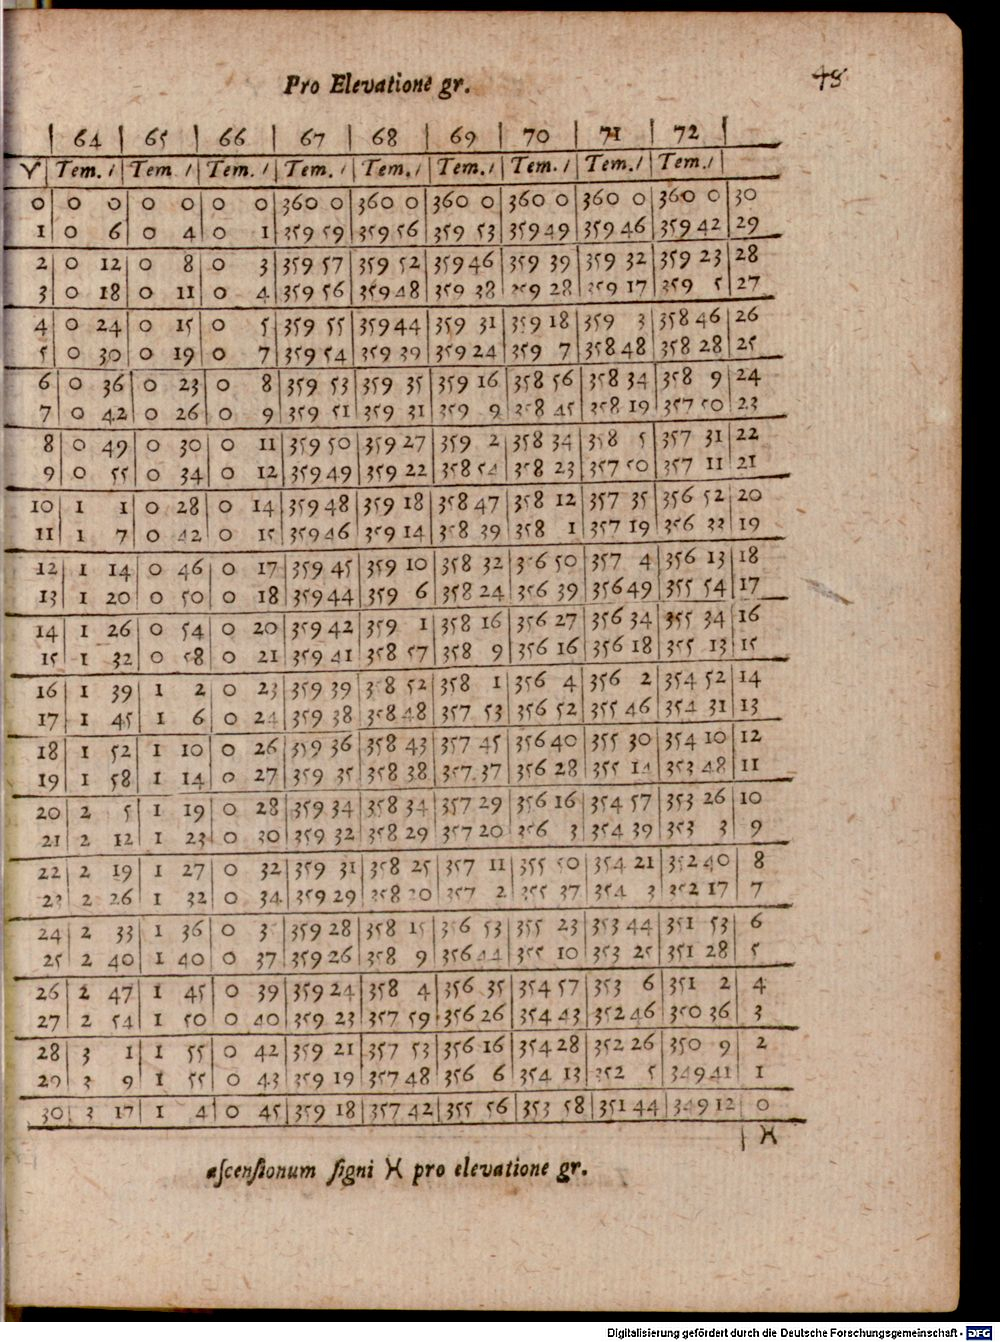 Pro Elevatione gr. 48
64 65 66 67 68 69 70 71 72
♈ Tem. / Tem / Tem. / Tem. / Tem. / Tem. / Tem. / Tem. / Tem. /
0 0 0 0 0 0 0 360 0 360 0 360 0 360 0 360 0 360 0 30
1 0 6 0 4 0 1 359 59 359 56 359 53 359 49 359 46 359 42 29
2 0 12 0 8 0 3 359 57 359 52 359 46 359 39 359 32 359 23 28
3 0 18 0 11 0 4 359 56 359 48 359 38 359 28 359 17 359 5 27
4 0 24 0 15 0 5 359 55 359 44 359 31 359 18 359 3 358 46 26
5 0 30 0 19 0 7 359 54 359 39 359 24 359 7 358 48 358 28 25
6 0 36 0 23 0 8 359 53 359 35 359 16 358 56 358 34 358 9 24
7 0 42 0 26 0 9 359 51 359 31 359 9 358 45 358 19 357 50 23
8 0 49 0 30 0 11 359 50 359 27 359 2 358 34 358 5 357 31 22
9 0 55 0 34 0 12 359 49 359 22 358 54 358 23 357 50 357 11 21
10 1 1 0 28 0 14 359 48 359 18 358 47 358 12 357 35 356 52 20
11 1 7 0 42 0 15 359 46 359 14 358 39 358 1 357 19 356 33 19
12 1 14 0 46 0 17 359 45 359 10 358 32 356 50 357 4 356 13 18
13 1 20 0 50 0 18 359 44 359 6 358 24 356 39 356 49 355 54 17
14 1 26 0 54 0 20 359 42 359 1 358 16 356 27 356 34 355 34 16
15 1 32 0 58 0 21 359 41 358 57 358 9 356 16 356 18 355 13 15
16 1 39 1 2 0 23 359 39 358 52 358 1 356 4 356 2 354 52 14
17 1 45 1 6 0 24 359 38 358 48 357 53 356 52 355 46 354 31 13
18 1 52 1 10 0 26 359 36 358 43 357 45 356 40 355 30 354 10 12
19 1 58 1 14 0 27 359 35 358 38 357 37 356 28 355 14 353 48 11
20 2 5 1 19 0 28 359 34 358 34 357 29 356 16 354 57 353 26 10
21 2 12 1 23 0 30 359 32 358 29 357 20 356 3 354 39 353 3 9
22 2 19 1 27 0 32 359 31 358 25 357 11 355 50 354 21 352 40 8
23 2 26 1 32 0 34 359 29 358 20 357 2 355 37 354 3 352 17 7
24 2 33 1 36 0 3 359 28 358 15 356 53 355 23 353 44 351 53 6
25 2 40 1 40 0 37 359 26 358 9 356 44 355 10 353 25 351 28 5
26 2 47 1 45 0 39 359 24 358 4 356 35 354 57 353 6 351 2 4
27 2 54 1 50 0 40 359 23 357 59 356 26 354 43 352 46 350 36 3
28 3 1 1 55 0 42 359 21 357 53 356 16 354 28 352 26 350 9 2
29 3 9 1 55 0 43 359 19 357 48 356 6 354 13 352 5 349 41 1
30 3 17 1 4 0 45 359 18 357 42 355 56 353 58 351 44 349 12 0
♓
ascensionum signi ♓ pro elevatione gr.
Digitalisierung gefördert durch die Deutsche Forschungsgemeinschaft - DFG